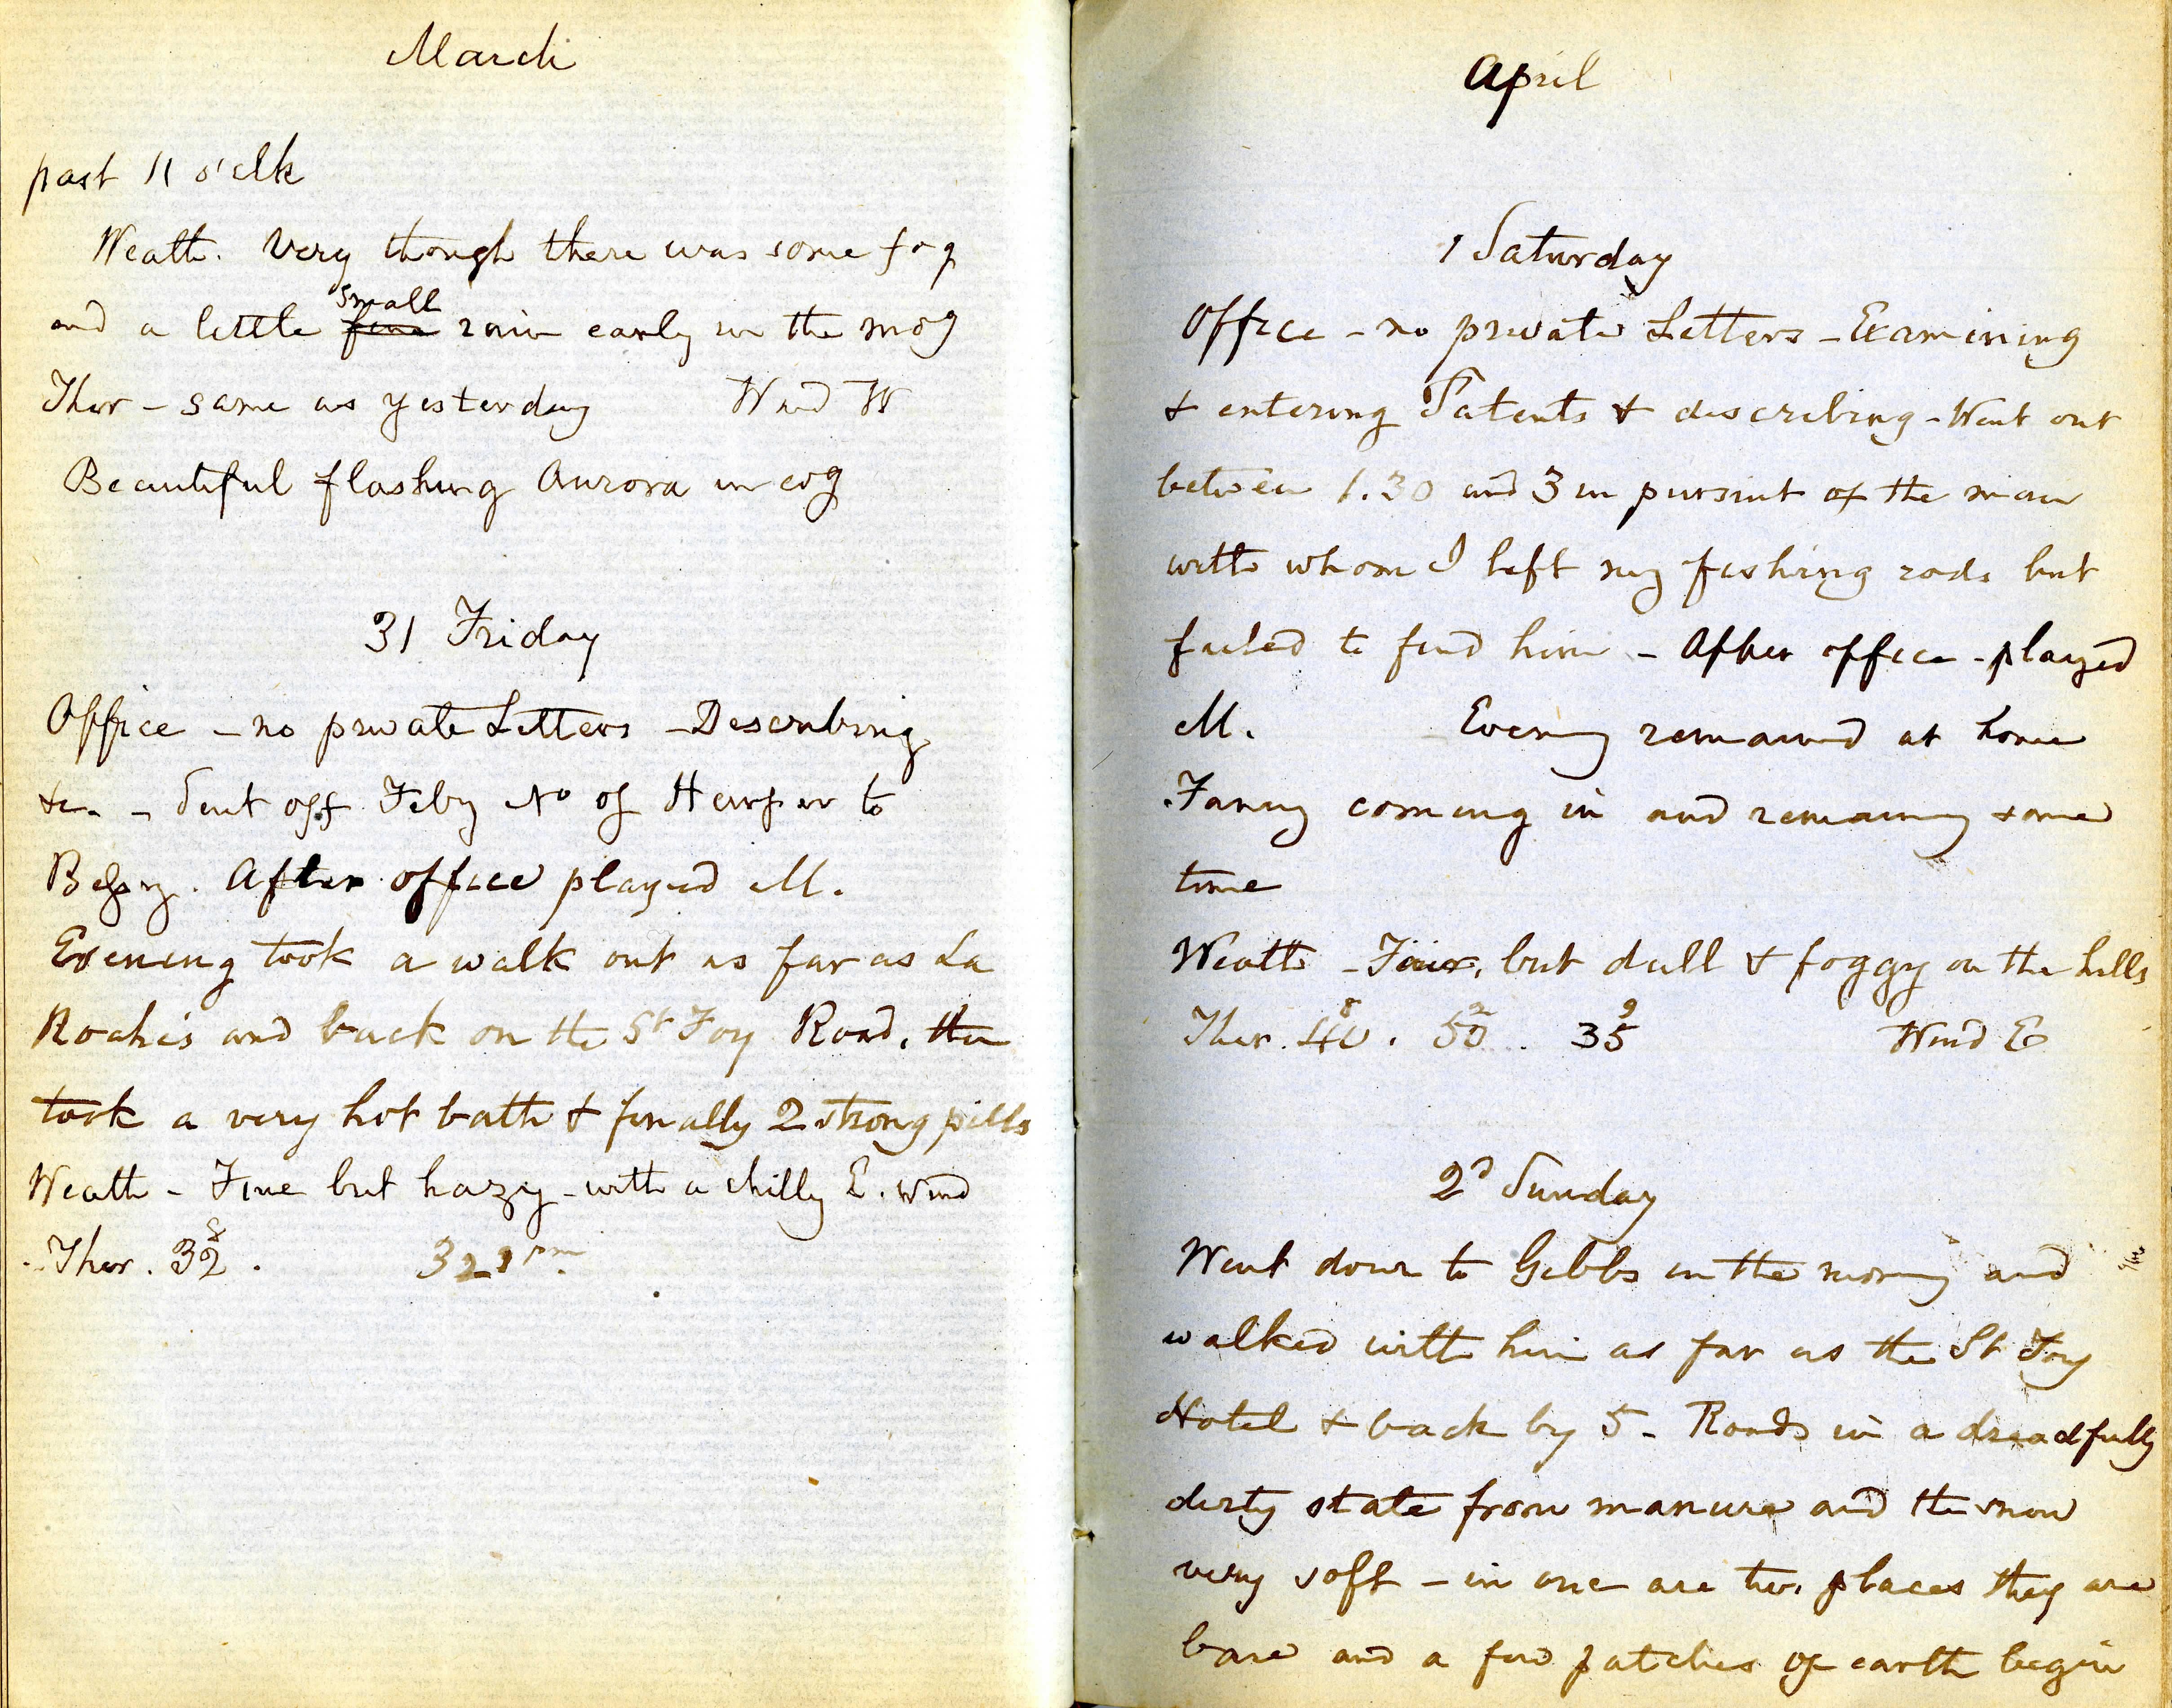 March
past 11 o'clk
Weath. Very though there was some fog
and a little fine small rain early in the mog
Ther - same as yesterday Wind W
Beautiful flashing Aurora in evg
31 Friday
Office - no private Letters - Describing
&c. - Sent off Feby No of Harper to
After office played M.
Evening took a walk out as far as La
and back on the St Foy Road, then
took a very hot bath & finally 2 strong pills
Weath - Fine but hazy - with a chilly E. Wind
Ther. 32
April
1 Saturday
Office - no private Letters - Examining
& entering Patents & describing - Went out
between 1.30 and 3 in pursuit of the man
with whom I left my fishing rods but
failed to find him - After office - played
M. Evening remained at home
Fanny coming in and remaining some
time
Weath - Fair, but dull & foggy on the hills
Ther. 40 8 . 50 2 . 35 9 Wind E
2d Sunday
Went down to Gibbs in the morning and
walked with him as far as the St Foy
Hotel & back by 5 - Roads in a dreadfully
dirty state from manure and the snow
very soft - in one are two places they are
bare and a few patches of earth begin